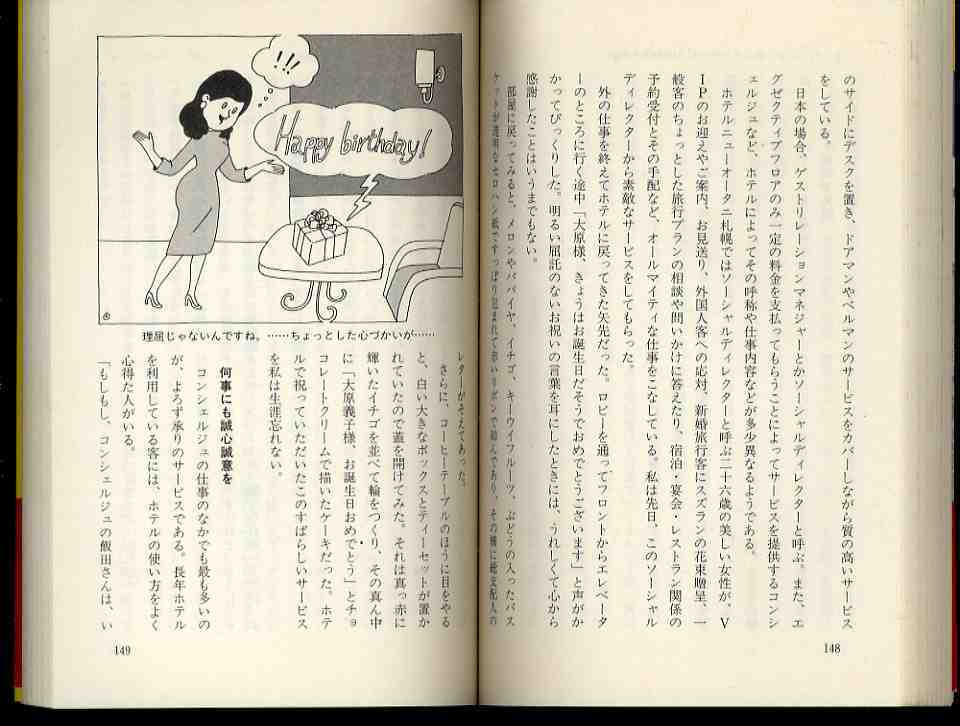 のサイドにデスクを置き、ドアマンやベルマンのサービスをカバーしながら質の高いサービス
をしている。
日本の場合、ゲストリレーションマネジャーとかソーシャルディレクターと呼ぶ。また、エ
グゼクティブフロアのみ一定の料金を支払ってもらうことによってサービスを提供するコンシ
ェルジュなど、ホテルによってその呼称や仕事内容などが多少異なるようである。
ホテルニューオータニ札幌ではソーシャルディレクターと呼ぶ二十六歳の美しい女性が、V
IPのお迎えやご案内、お見送り、外国人客への応対、新婚旅行客にスズランの花束贈呈、一
般客のちょっとした旅行プランの相談や問いかけに答えたり、宿泊・宴会・レストラン関係の
予約受付とその手配など、オールマイティな仕事をこなしている。私は先日、このソーシャル
ディレクターから素敵なサービスをしてもらった。
外の仕事を終えてホテルに戻ってきた矢先だった。ロビーを通ってフロントからエレベータ
ーのところに行く途中「大原様、きょうはお誕生日だそうでおめでとうございます」と声がか
かってびっくりした。明るい屈託のないお祝いの言葉を耳にしたときには、うれしくて心から
感謝したことはいうまでもない。
部屋に戻ってみると、メロンやパパイヤ、イチゴ、キーウイフルーツ、ぶどうの入ったバス
ケットが透明なセロハン紙ですっぽり包まれて赤いリボンで結んであり、その横に総支配人の
148
!!!
Happy birthday!
理屈じゃないんですね。……ちょっとした心づかいが……
レターがそえてあった。
さらに、コーヒーテーブルのほうに目をやる
と、白い大きなボックスとティーセットが置か
れていたので蓋を開けてみた。それは真っ赤に
輝いたイチゴを並べて輪をつくり、その真ん中
に「大原義子様、お誕生日おめでとう」とチョ
コレートクリームで描いたケーキだった。ホテ
ルで祝っていただいたこのすばらしいサービス
を私は生涯忘れない。
何事にも誠心誠意を
コンシェルジュの仕事のなかでも最も多いの
が、よろず承りのサービスである。長年ホテル
を利用している客には、ホテルの使い方をよく
心得た人がいる。
「もしもし、コンシェルジュの飯田さんは、い
149